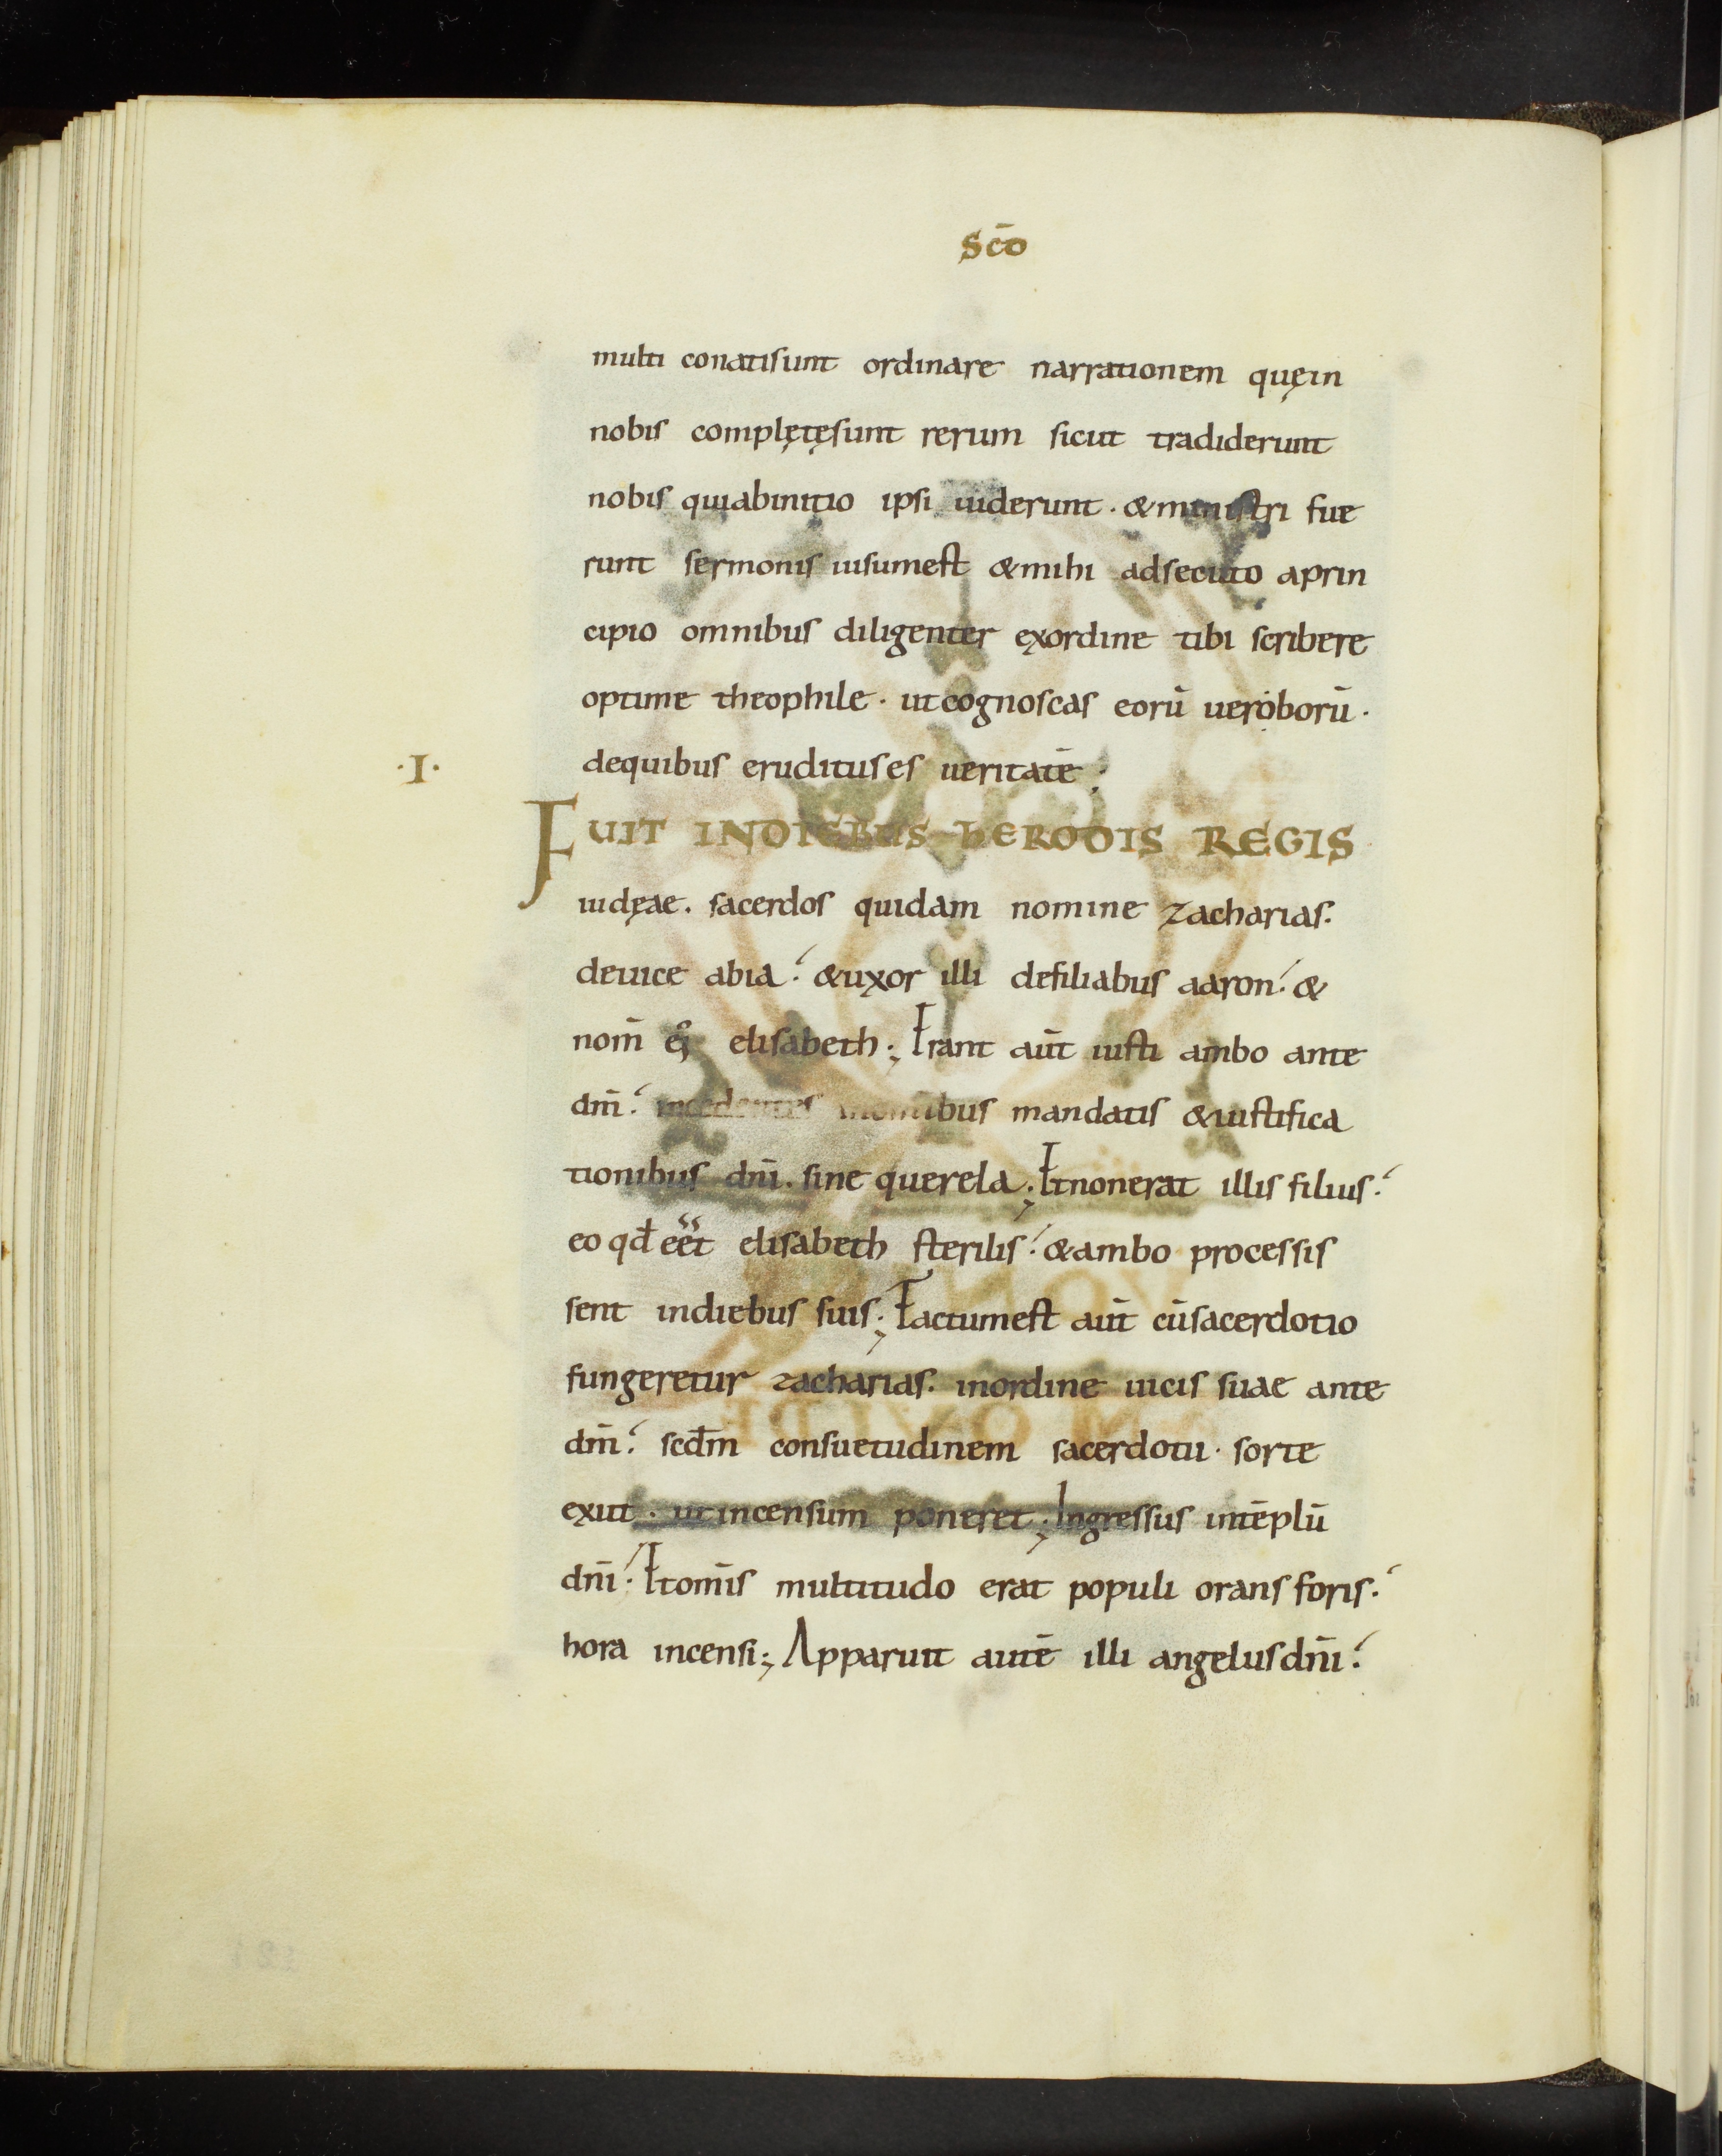 Scō
multi conatisunt ordinare narrationem quęin
nobis complętęsunt rerum sicut tradiderunt
nobis quiabinitio ipsi uiderunt · &ministri fue
runt sermonis uisumest &mihi adsecuto aprin
cipio omnibus diligenter exordine tibi scribere
optime theophile · utcognoscas eorū uerborū ·
·I· dequibus eruditus es ueritatē ;
FUIT INDIEBUS HERODIS REGIS
iudęae . sacerdos quidam nomine zacharias .
deuice abia : &uxor illi defiliabus aaron : &
nom̄ ei᷒ elisabeth ; Erant aut̄ iusti ambo ante
dm̄ : incedentes inomnibus mandatis &iustifica
tionibus dn̄i . sine querela ; Etnonerat illis filius :
eo qđ eet̄ elisabeth sterilis : &ambo processis
sent indiebus suis ; Factumest aut̄ cūsacerdotio
fungeretur zacharias . inordine uicis suae ante
dm̄ : scd̄m consuetudinem sacerdotii · sorte
exiit · utincensum poneret ; Ingressus intēplū
dn̄i : Etom̄is multitudo erat populi orans foris :
hora incensi ; Apparuit autē illi angelusdn̄i :